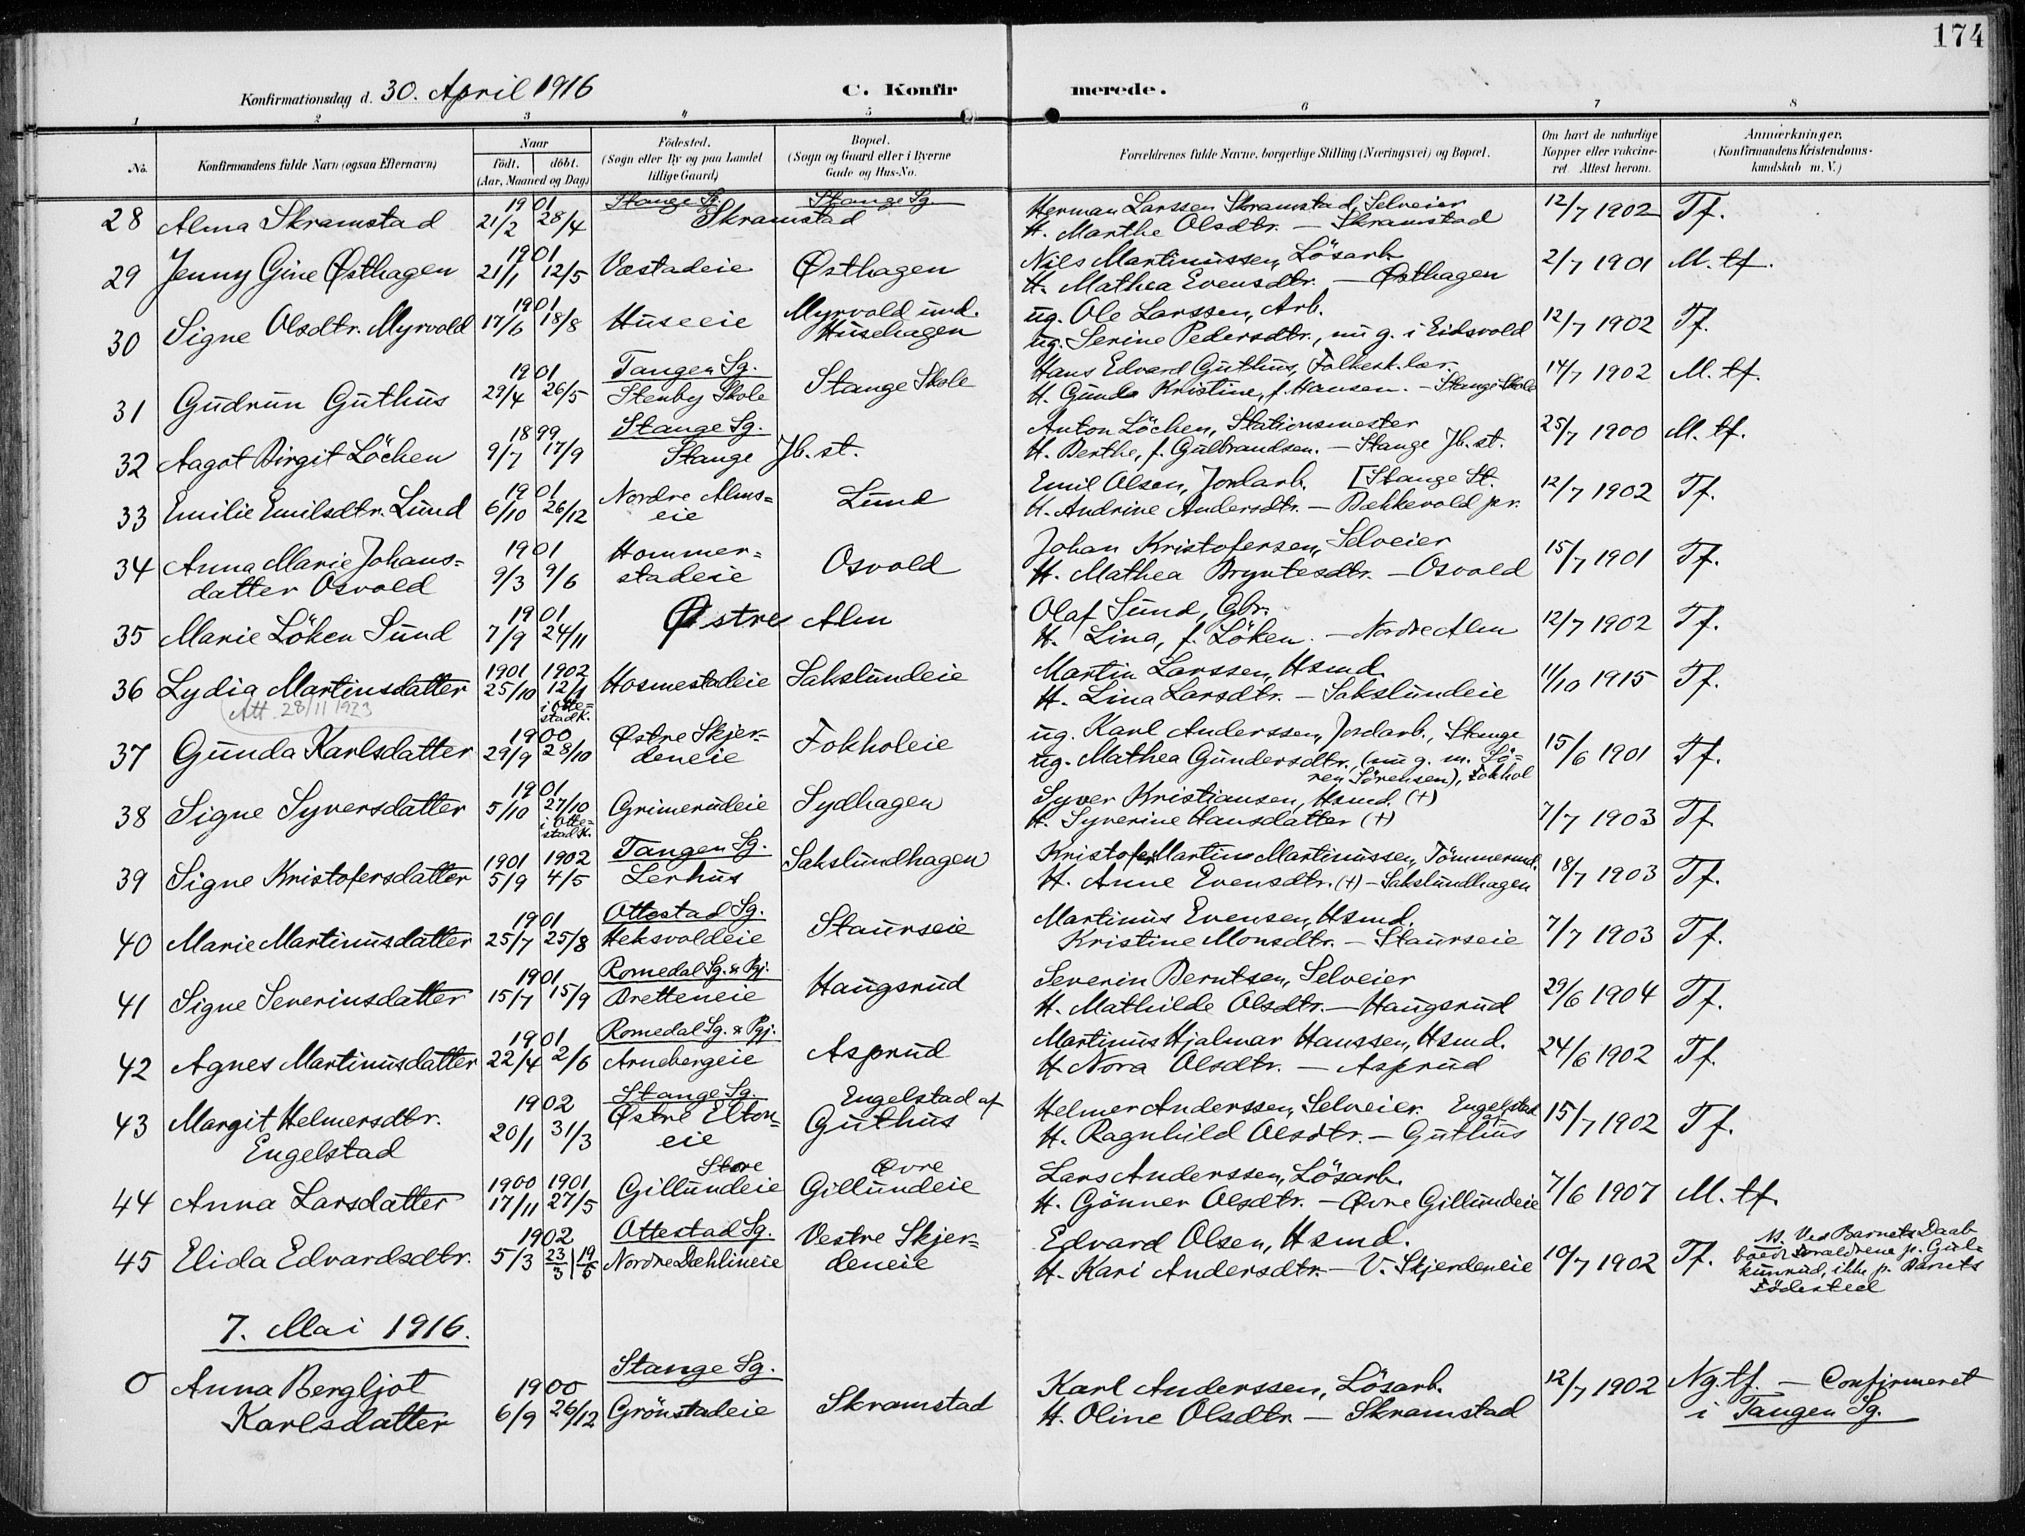 174
Konfirmationsdag d. 30. April 1916 C. Konfirmerede.
1 2 3 4 5 6 7 8
No. Konfirmandens fulde Navn (ogsaa Efternavn) Naar født. døbt. (Aar, Maaned og Dag) Fødested. (Sogn eller By og paa Landet tillige Gaard) Bopæl. (Sogn og Gaard eller i Byerne Gade og Hus-No. Forældrenes fulde Navne, borgerlige Stilling (Næringsvei) og Bopæl. Om havt de naturlige Kopper eller vakcineret. Attest herom. Anmærkninger. (Konfirmandens Kristendomskundskab m. V.)
1901 Stange Sg. Stange Sg. Herman Larssen Skramstad, Selveier
28 Alma Skramstad 21/2 28/4 Skramstad H. Marthe Olsdtr. — Skramstad 12/7 1902 Tf.
1901 Nils Martinussen, Lösarb.
29 Jenny Gine Østhagen 21/1 12/5 Væstadeie Østhagen H. Mathea Evensdtr. — Østhagen 2/7 1901 M. tf.
1901 Myrvold und. ug. Ole Larssen, Arb.
30 Signe Olsdtr. Myrvold 17/6 18/8 Huseeie Husehagen ug. Serine Pedersdtr., nu g. i Eidsvold 12/7 1902 Tf.
1901 Tangen Sg. Hans Edvard Guthus, Folkesk.lær.
31 Gudrun Guthus 29/4 26/5 Stenby Skole Stange Skole H. Gunda Kristine, f. Hansen. — Stange Skole 14/7 1902 M. tf.
1899 Stange Sg. Anton Löchen, Stationsmester
32 Aagot Birgit Löchen 9/7 17/9 Stange Jb. st. H. Berthe, f. Gulbrandsen. — Stange Jb. st. 25/7 1900 M. tf.
1901 Nordre Alms= Emil Olsen, Jordarb. [Stange St.
33 Emilie Emilsdtr. Lund 6/10 26/12 eie Lund H. Andrine Andersdtr. — Bækkevold pr. 12/7 1902 Tf.
34 Anna Marie Johans= 1901 Hommer= Johan Kristofersen, Selveier
datter Osvold 9/3 9/6 stadeie Osvold H. Mathea Bryntesdtr. — Osvold 15/7 1901 Tf.
1901 Olaf Sund, Gbr.
35 Marie Löken Sund 7/9 24/11 Østre Alm H. Lina, f. Löken. — Nordre Alm 12/7 1902 Tf.
1901 1902 Martin Larssen, Hsmd.
36 Lydia Martinsdatter 25/10 12/1 Hosmestadeie Sakslundeie H. Lina Larsdtr. — Sakslundeie 11/10 1915 Tf.
Att. 28/11 1923 i Otte=
stad K.
1900 Østre Skjer= ug. Karl Anderssen, Jordarb., Stange
37 Gunda Karlsdatter 29/9 28/10 deneie Fokholeie ug. Mathea Gundersdtr., (nu g. m. Sö= 15/6 1901 Tf.
ren Sörensen), Fokhol
1901 Syver Kristiansen, Hsmd. (+)
38 Signe Syversdatter 5/10 27/10 Grimerudeie Sydhagen H. Syverine Hansdatter (+) 7/7 1903 Tf.
i Otte=
stad K.
1901 1902 Tangen Sg. Kristofer Martin Martinussen, Tömmermd.
39 Signe Kristofersdatter 5/9 4/5 Lerhus Sakslundhagen H. Anne Evensdtr. (+) — Sakslundhagen 18/7 1903 Tf.
1901 Ottestad Sg. Martinus Evensen, Hsmd.
40 Marie Martinusdatter 25/7 25/8 Heksvoldeie Staurseie Kristine Monsdtr. — Staurseie 7/7 1903 Tf.
1901 Romedal Sg. & Pgj. Severin Berntsen, Selveier
41 Signe Severinsdatter 15/7 15/9 Bretteneie Haugsrud H. Mathilde Olsdtr. — Haugsrud 29/6 1904 Tf.
1901 Romedal Sg. & Pgj. Martinus Hjalmar Hanssen, Hsmd.
42 Agnes Martinusdatter 22/4 2/6 Arnebergeie Asprud H. Nora Olsdtr. — Asprud 24/6 1902 Tf.
1902 Stange Sg. Engelstad af Helmer Anderssen, Selveier. Engelstad
43 Margit Helmersdtr. 20/1 31/3 Østre Elton= Guthus H. Ragnhild Olsdtr. — af Guthus 15/7 1902 Tf.
Engelstad eie
1900 1901 Store Øvre Lars Anderssen, Lösarb.
44 Anna Larsdatter 17/11 27/5 Gillundeie Gillundeie H. Gönner Olsdtr. — Øvre Gillundeie 7/6 1907 M. tf.
1902 Ottestad Sg. Vestre Skjer= Edvard Olsen, Hsmd.
45 Elida Edvardsdtr. 5/3 23/3 | 19/6 Nordre Dæhlineie deneie H. Kari Andersdtr. — V. Skjerdeneie 10/7 1902 Tf. Ved Barnets Daab
boede Foraldrene p. Gul=
kunrud, ikke p. Barnets
Födested
7. Mai 1916.
Stange Sg.
0 Anna Bergljot 1900 Karl Anderssen, Lösarb. 12/7 1902 Ng. tf. — Confirmeret
Karlsdatter 6/9 26/12 Grönstadeie Skramstad H. Oline Olsdtr. — Skramstad i Tangen Sg.